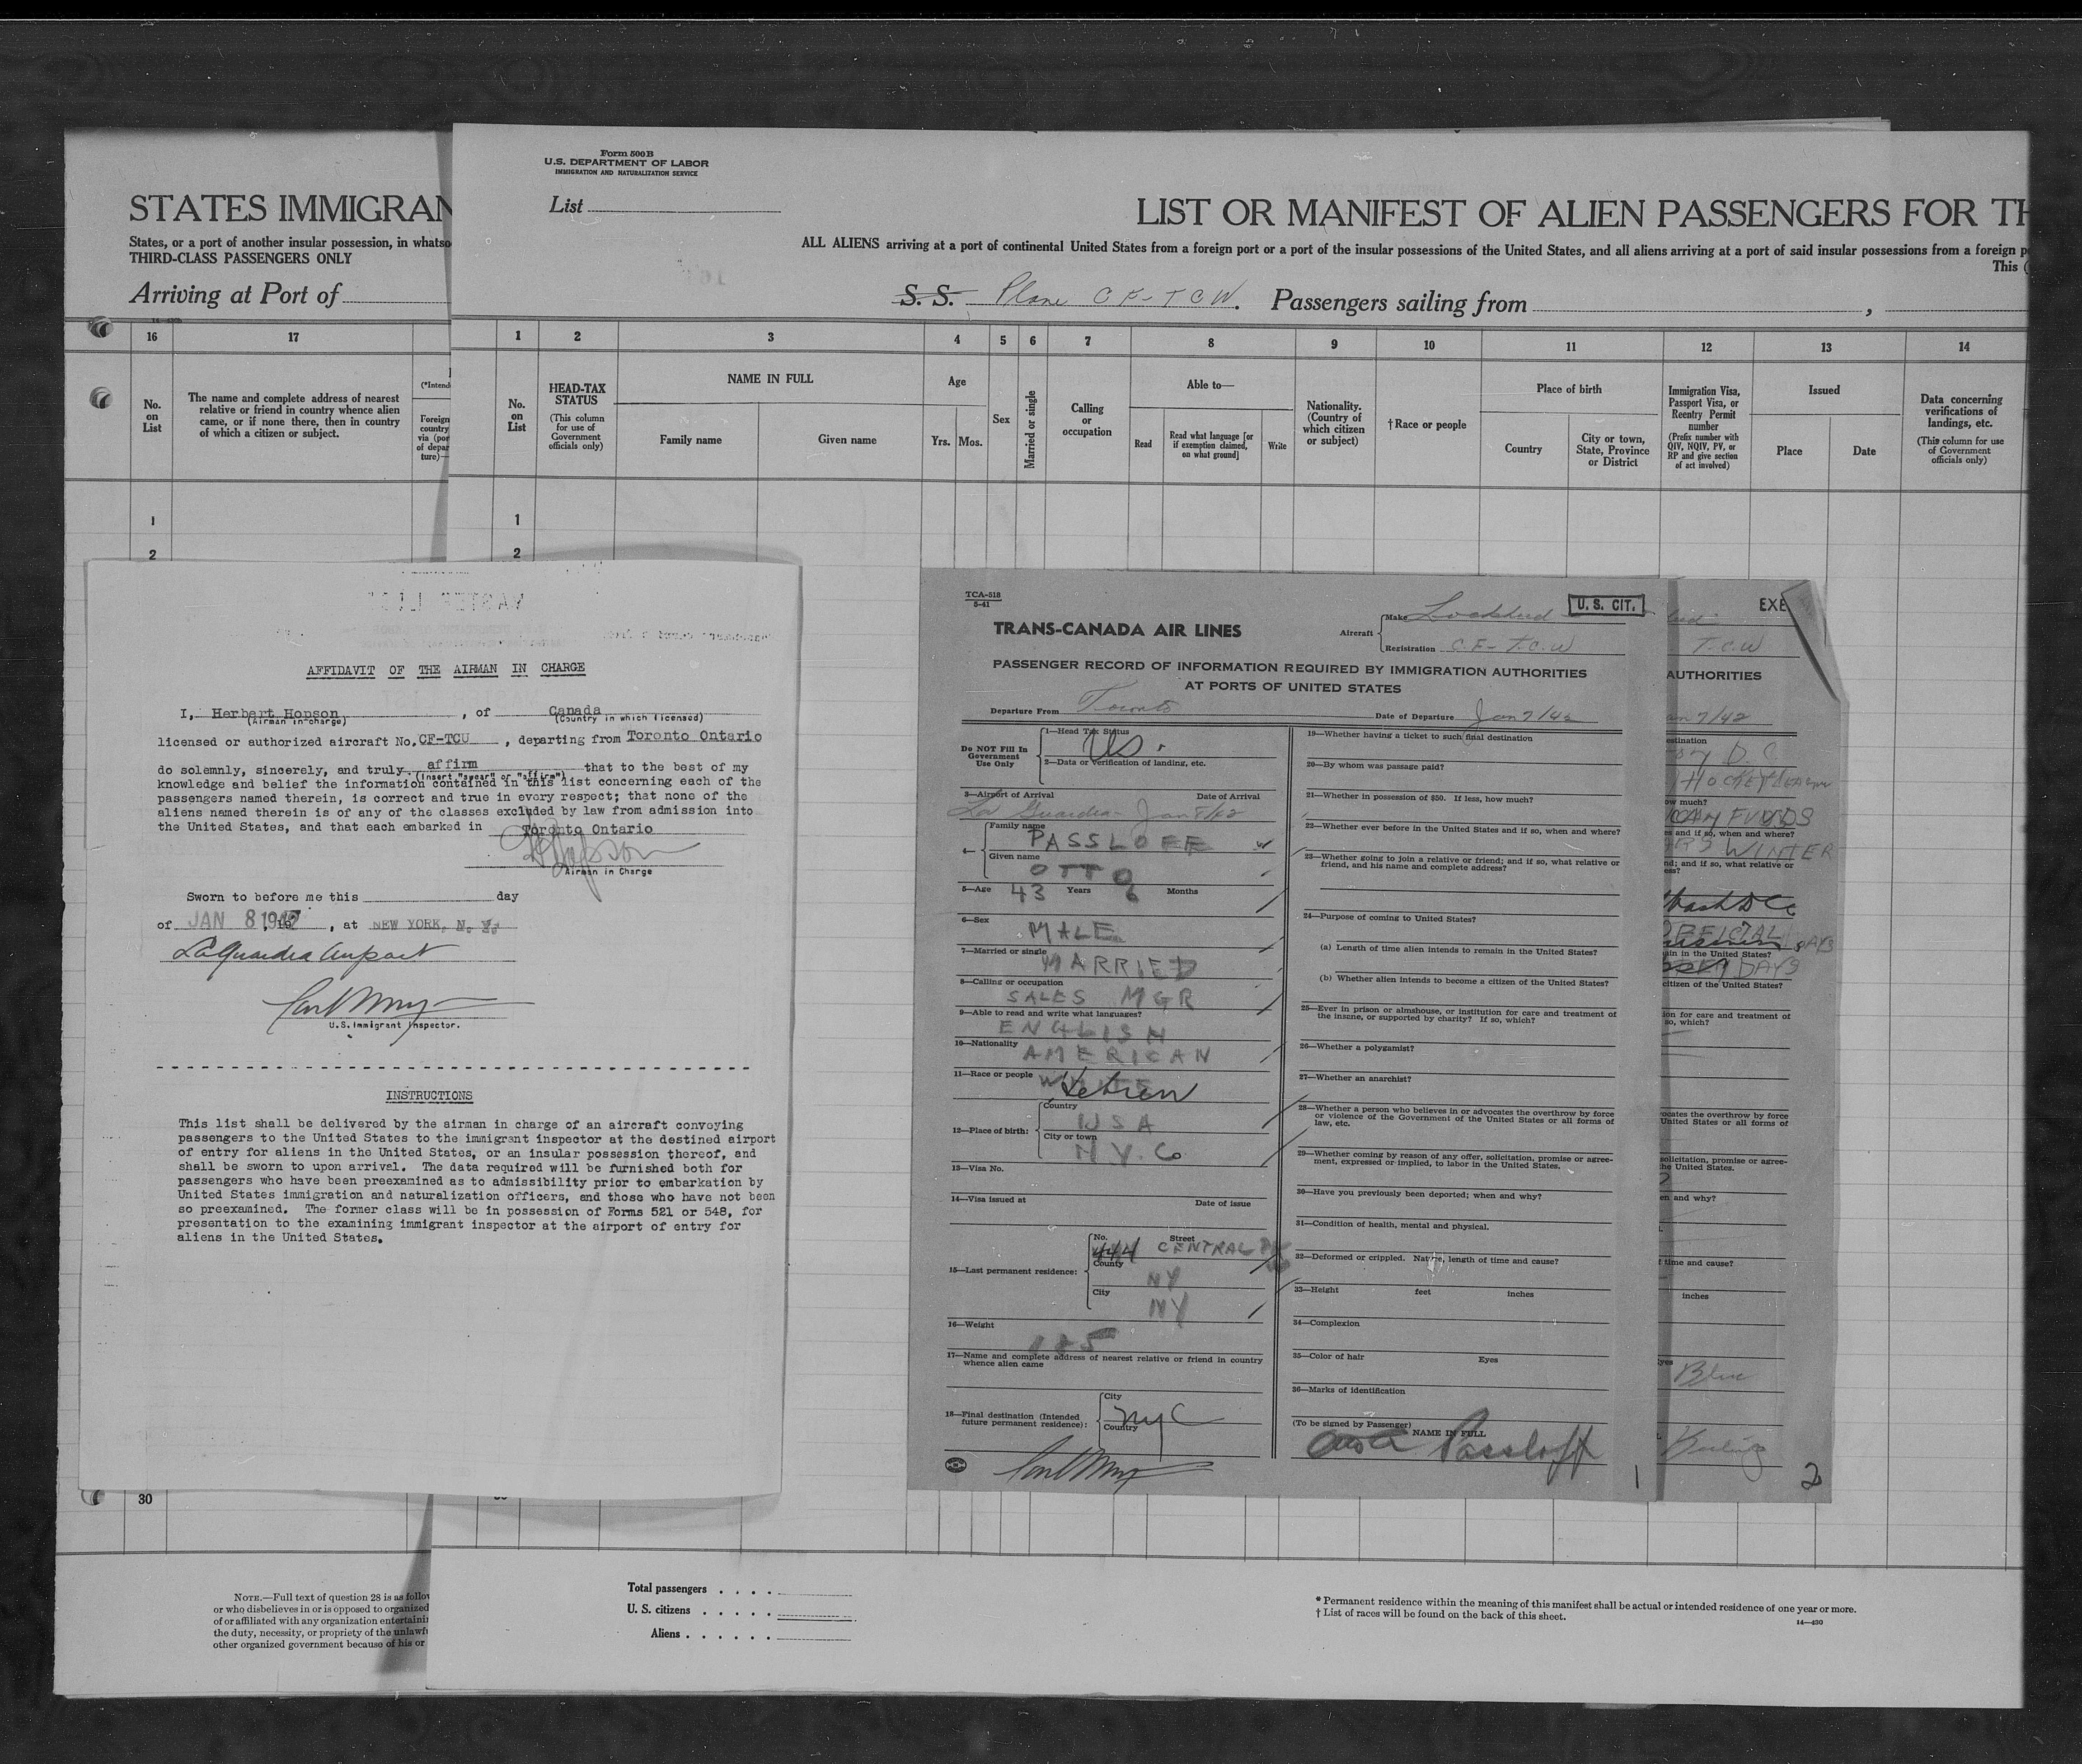 STATES IMMIGRAN
States, or a port of another insular possession, in whatso
THIRD-CLASS PASSENGERS ONLY
Arriving at Port of
16
17
No. on List
The name and complete address of nearest
relative or friend in country whence alien
came, or if none there, then in country
of which a citizen or subject.
(*Intend
Foreign
country
via (por
of depar
ture)—
1
2
30
NOTE.—Full text of question 28 is as follow
or who disbelieves in or is opposed to organized
of or affiliated with any organization entertaini
the duty, necessity, or propriety of the unlawf
other organized government because of his or
Form 500 B
U.S. DEPARTMENT OF LABOR
IMMIGRATION AND NATURALIZATION SERVICE
List
LIST OR MANIFEST OF ALIEN PASSENGERS FOR TH
ALL ALIENS arriving at a port of continental United States from a foreign port or a port of the insular possessions of the United States, and all aliens arriving at a port of said insular possessions from a foreign p
This (
S. S. Plane CF-TCW. Passengers sailing from ,
1 2 3 4 5 6 7 8 9 10 11 12 13 14
No. on List
HEAD-TAX STATUS
(This column for use of Government officials only)
NAME IN FULL
Family name
Given name
Age
Yrs. Mos.
Sex
Married or single
Calling or occupation
Able to—
Read
Read what language [or if exemption claimed, on what ground]
Write
Nationality. (Country of which citizen or subject)
†Race or people
Place of birth
Country
City or town, State, Province or District
Immigration Visa, Passport Visa, or Reentry Permit number
(Prefix number with QIV, NQIV, PV, or RP and give section of act involved)
Issued
Place
Date
Data concerning verifications of landings, etc.
(This column for use of Government officials only)
1
2
Total passengers . . . .
U. S. citizens . . . . .
Aliens . . . . . .
* Permanent residence within the meaning of this manifest shall be actual or intended residence of one year or more.
† List of races will be found on the back of this sheet.
14—430
AFFIDAVIT OF THE AIRMAN IN CHARGE
I, Herbert Hopson , of Canada
(Airman in charge) (Country in which licensed)
licensed or authorized aircraft No. CF-TCU , departing from Toronto Ontario
do solemnly, sincerely, and truly affirm that to the best of my
(Insert "swear" or "affirm")
knowledge and belief the information contained in this list concerning each of the
passengers named therein, is correct and true in every respect; that none of the
aliens named therein is of any of the classes excluded by law from admission into
the United States, and that each embarked in Toronto Ontario
H Hopson
Airman in Charge
Sworn to before me this day
of JAN 8 1942 , at NEW YORK, N. Y.
LaGuardia Airport
U.S. Immigrant Inspector.
INSTRUCTIONS
This list shall be delivered by the airman in charge of an aircraft conveying
passengers to the United States to the immigrant inspector at the destined airport
of entry for aliens in the United States, or an insular possession thereof, and
shall be sworn to upon arrival. The data required will be furnished both for
passengers who have been preexamined as to admissibility prior to embarkation by
United States immigration and naturalization officers, and those who have not been
so preexamined. The former class will be in possession of Forms 521 or 548, for
presentation to the examining immigrant inspector at the airport of entry for
aliens in the United States.
TCA-518
5-41
U. S. CIT.
TRANS-CANADA AIR LINES
Aircraft
Make Lockheed
Registration CF-T.C.W
PASSENGER RECORD OF INFORMATION REQUIRED BY IMMIGRATION AUTHORITIES
AT PORTS OF UNITED STATES
Departure From Toronto Date of Departure Jan 7/42
Do NOT Fill In Government Use Only
1—Head Tax Status
US.
2—Data or verification of landing, etc.
3—Airport of Arrival Date of Arrival
La Guardia Jan 8/42
4—
Family name
PASSLOFF
Given name
OTTO
5—Age 43 Years 6 Months
6—Sex
MALE
7—Married or single
MARRIED
8—Calling or occupation
SALES MGR
9—Able to read and write what languages?
ENGLISH
10—Nationality
AMERICAN
11—Race or people
Hebrew
12—Place of birth:
Country
USA
City or town
N.Y. Co
13—Visa No.
14—Visa issued at Date of issue
15—Last permanent residence:
No. Street
444 CENTRAL PK
County
NY
City
NY
16—Weight
185
17—Name and complete address of nearest relative or friend in country
whence alien came
18—Final destination (Intended
future permanent residence):
City
NYC
Country
19—Whether having a ticket to such final destination
20—By whom was passage paid?
21—Whether in possession of $50. If less, how much?
22—Whether ever before in the United States and if so, when and where?
23—Whether going to join a relative or friend; and if so, what relative or
friend, and his name and complete address?
24—Purpose of coming to United States?
(a) Length of time alien intends to remain in the United States?
(b) Whether alien intends to become a citizen of the United States?
25—Ever in prison or almshouse, or institution for care and treatment of
the insane, or supported by charity? If so, which?
26—Whether a polygamist?
27—Whether an anarchist?
28—Whether a person who believes in or advocates the overthrow by force
or violence of the Government of the United States or all forms of
law, etc.
29—Whether coming by reason of any offer, solicitation, promise or agree-
ment, expressed or implied, to labor in the United States.
30—Have you previously been deported; when and why?
31—Condition of health, mental and physical.
32—Deformed or crippled. Nature, length of time and cause?
33—Height feet inches
34—Complexion
35—Color of hair Eyes
36—Marks of identification
(To be signed by Passenger) NAME IN FULL
Otto Passloff
1
EXE
T.C.W
AUTHORITIES
an 7/42
estination
D. C
HOCKEY LEAGUE
ow much?
FUNDS
es and if so, when and where?
WINTER
nd; and if so, what relative or
ess?
Wash D C
OFFICIAL
DAYS
ain in the United States?
DAYS
citizen of the United States?
ion for care and treatment of
so, which?
ocates the overthrow by force
United States or all forms of
solicitation, promise or agree-
the United States.
en and why?
f time and cause?
inches
Eyes
Blue
2